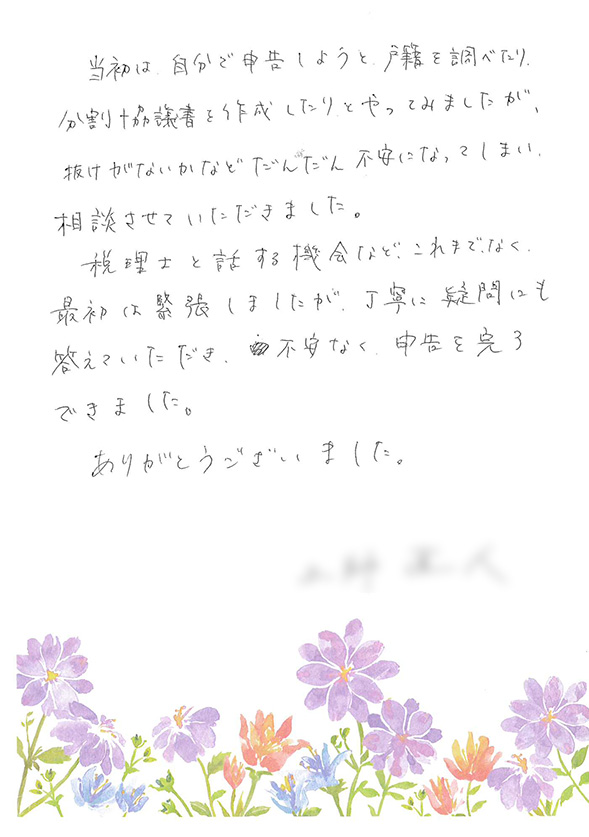 当初は、自分で申告しようと、戸籍を調べたり、
分割協議書を作成したりとやってみましたが、
抜けがないかなどだんだん不安になってしまい、
相談させていただきました。
税理士と話する機会など、これまでなく、
最初は緊張しましたが、丁寧に疑問にも
答えていただき、不安なく、申告を完了
できました。
ありがとうございました。